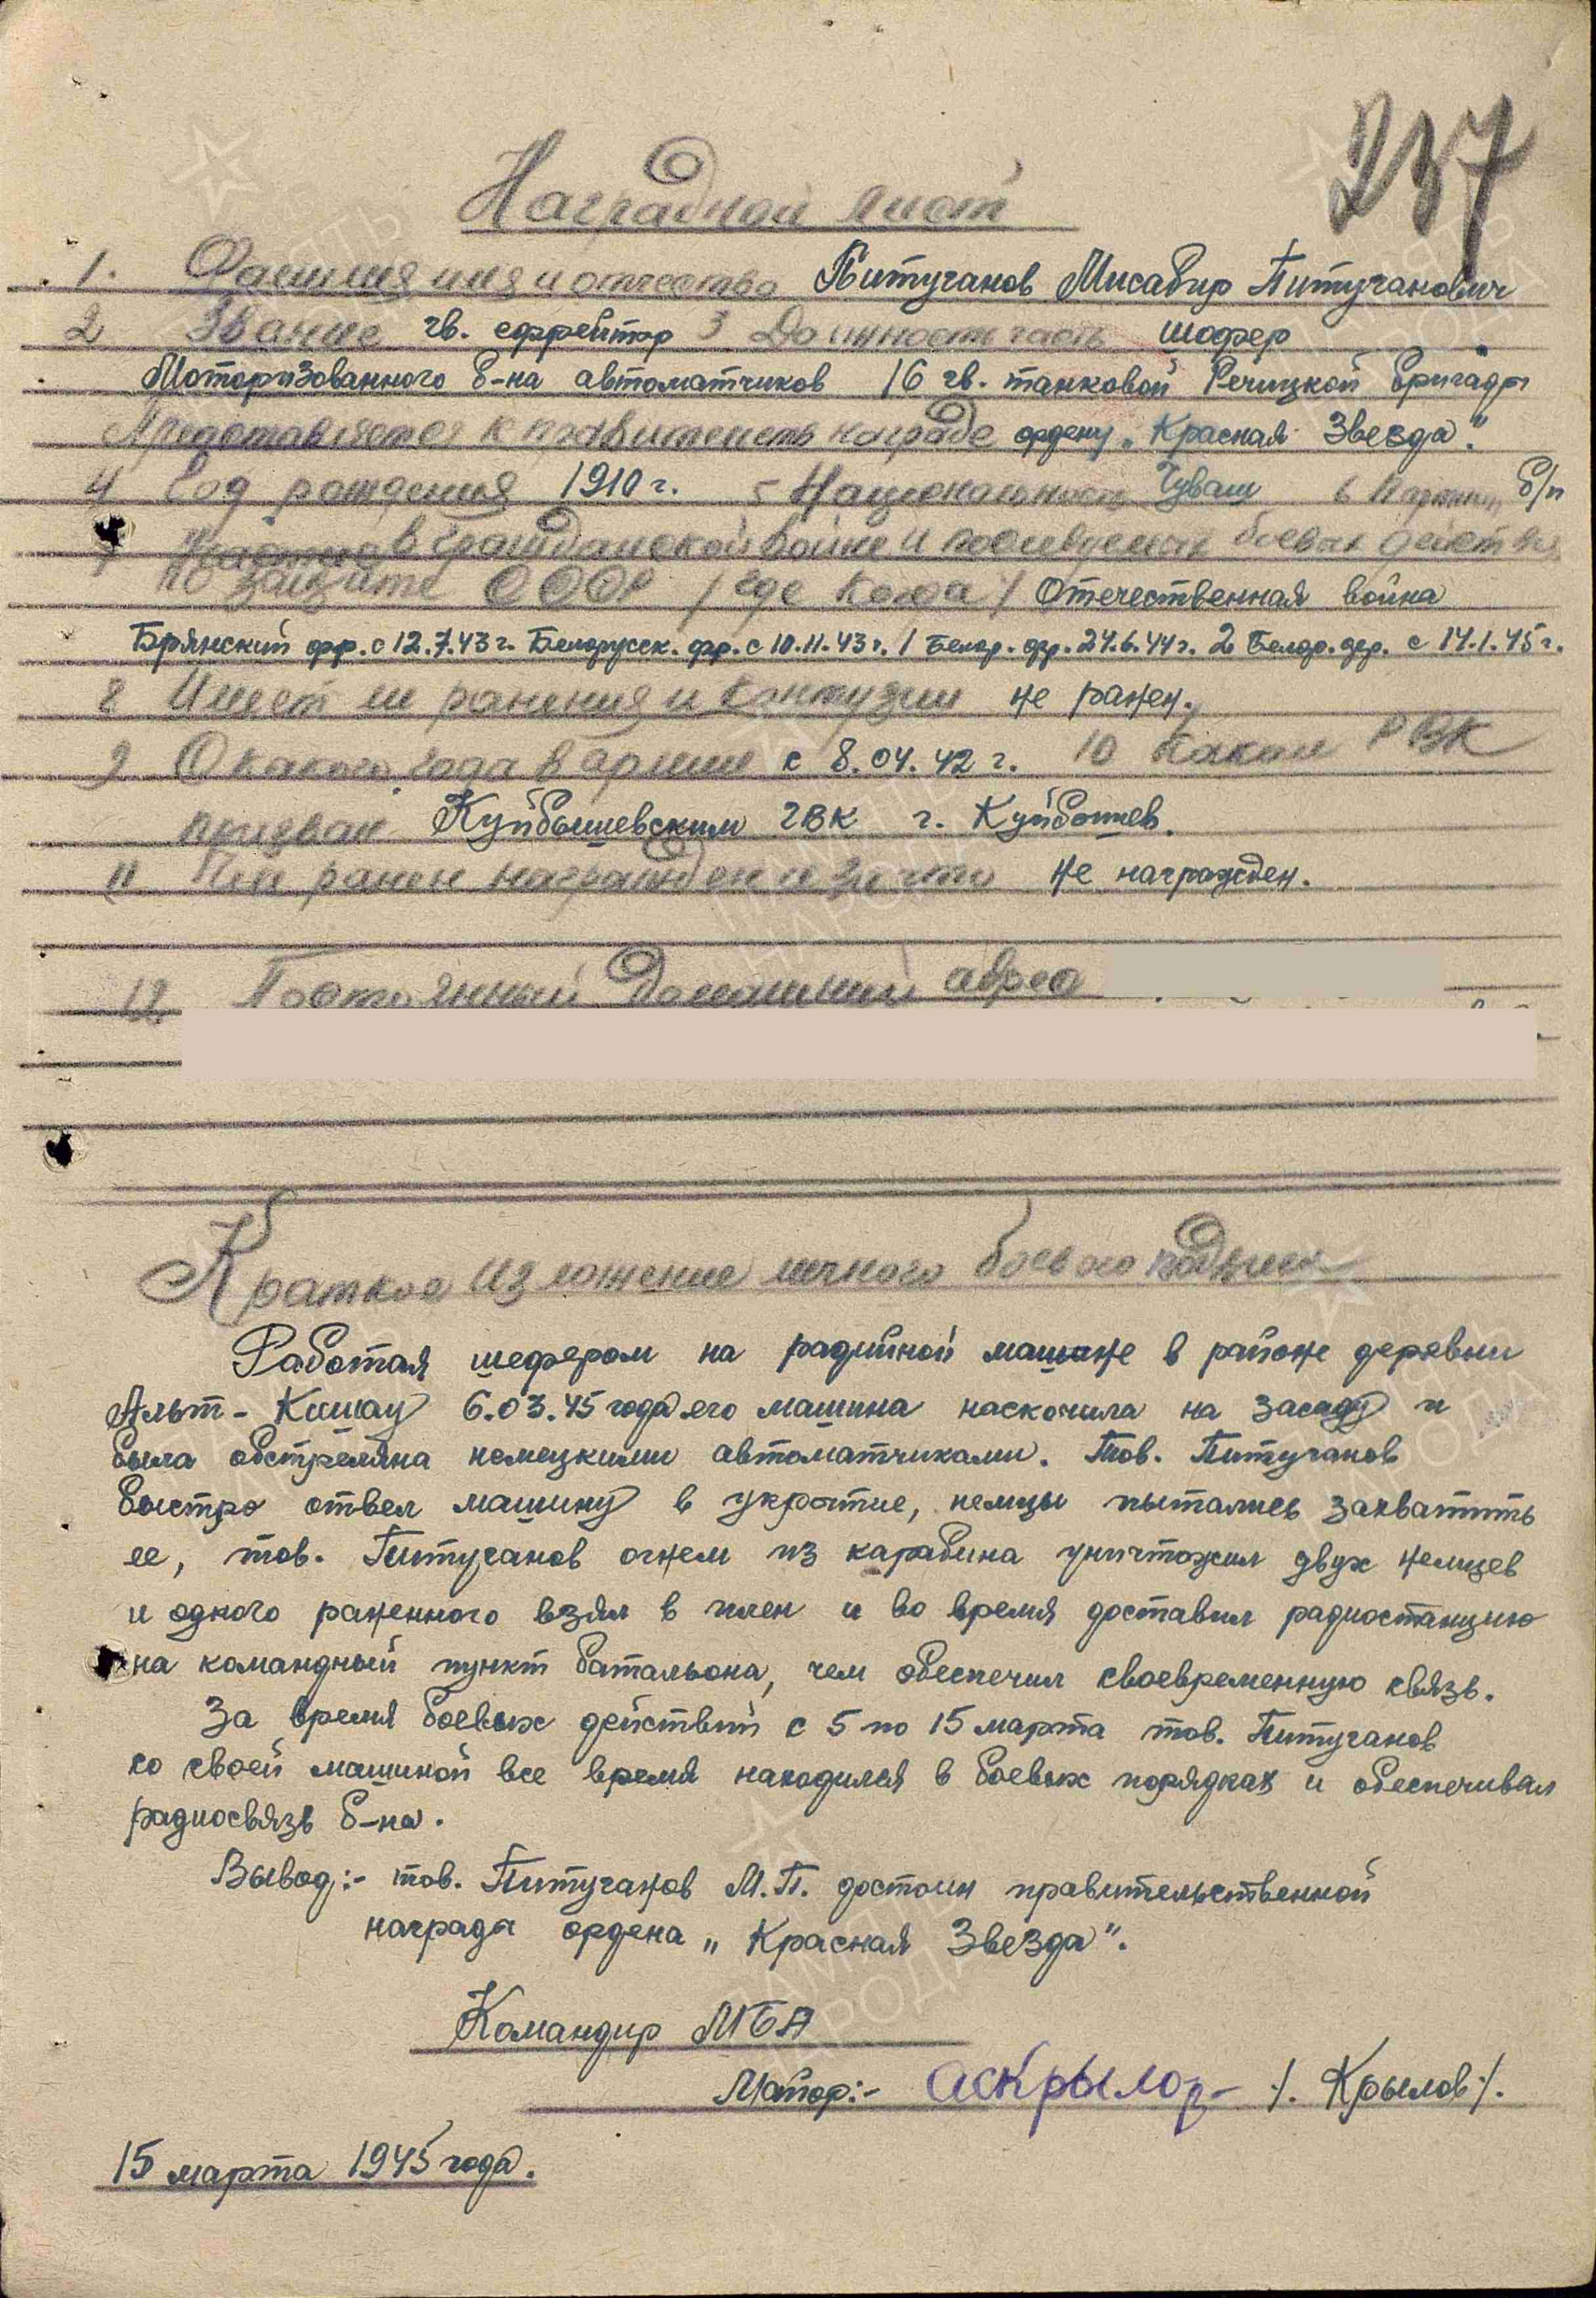 237
Наградной лист
1. Фамилия имя и отчество Питуганов Мисабир Питуганович
2 Звание гв. ефрейтор 3 Должность часть шофер
Моторизованного б-на автоматчиков 16 гв. танковой Речицкой бригады
Представляется к правительств награде ордену „Красная Звезда".
4 Год рождения 1910 г. 5 Национальность Чуваш 6 Партийн б/п
7 Участие в гражданской войне и последующих боевых действиях
по защите СССР /где когда/ Отечественная война
Брянский фр. с 12.7.43 г. Белорусск. фр. с 10.11.43 г. 1 Белор. фр. 24.6.44 г. 2 Белор. фр. с 14.1.45 г.
8 Имеет ли ранения и контузии не ранен.
9 С какого года в армии с 8.04.42 г. 10 Каким РВК
призван Куйбышевским ГВК г. Куйбышев.
11 Чем ранее награжден и за что не награжден.
12 Постоянный домашний адрес
Краткое изложение личного боевого подвига
Работая шофером на радийной машине в районе деревни
Альт-Кишау 6.03.45 года его машина наскочила на засаду и
была обстреляна немецкими автоматчиками. Тов. Питуганов
быстро отвел машину в укрытие, немцы пытались захватить
ее, тов. Питуганов огнем из карабина уничтожил двух немцев
и одного раненного взял в плен и во время доставил радиостанцию
на командный пункт батальона, чем обеспечил своевременную связь.
За время боевых действий с 5 по 15 марта тов. Питуганов
со своей машиной все время находился в боевых порядках и обеспечивал
радиосвязь б-на.
Вывод:- тов. Питуганов М.П. достоин правительственной
награды ордена „Красная Звезда".
Командир МБА
Майор:- /. Крылов/.
15 марта 1945 года.